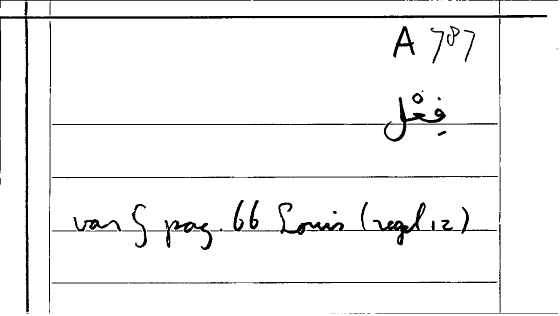 A 787
فِعْل
van G pag. 66 Louis (regel 12)